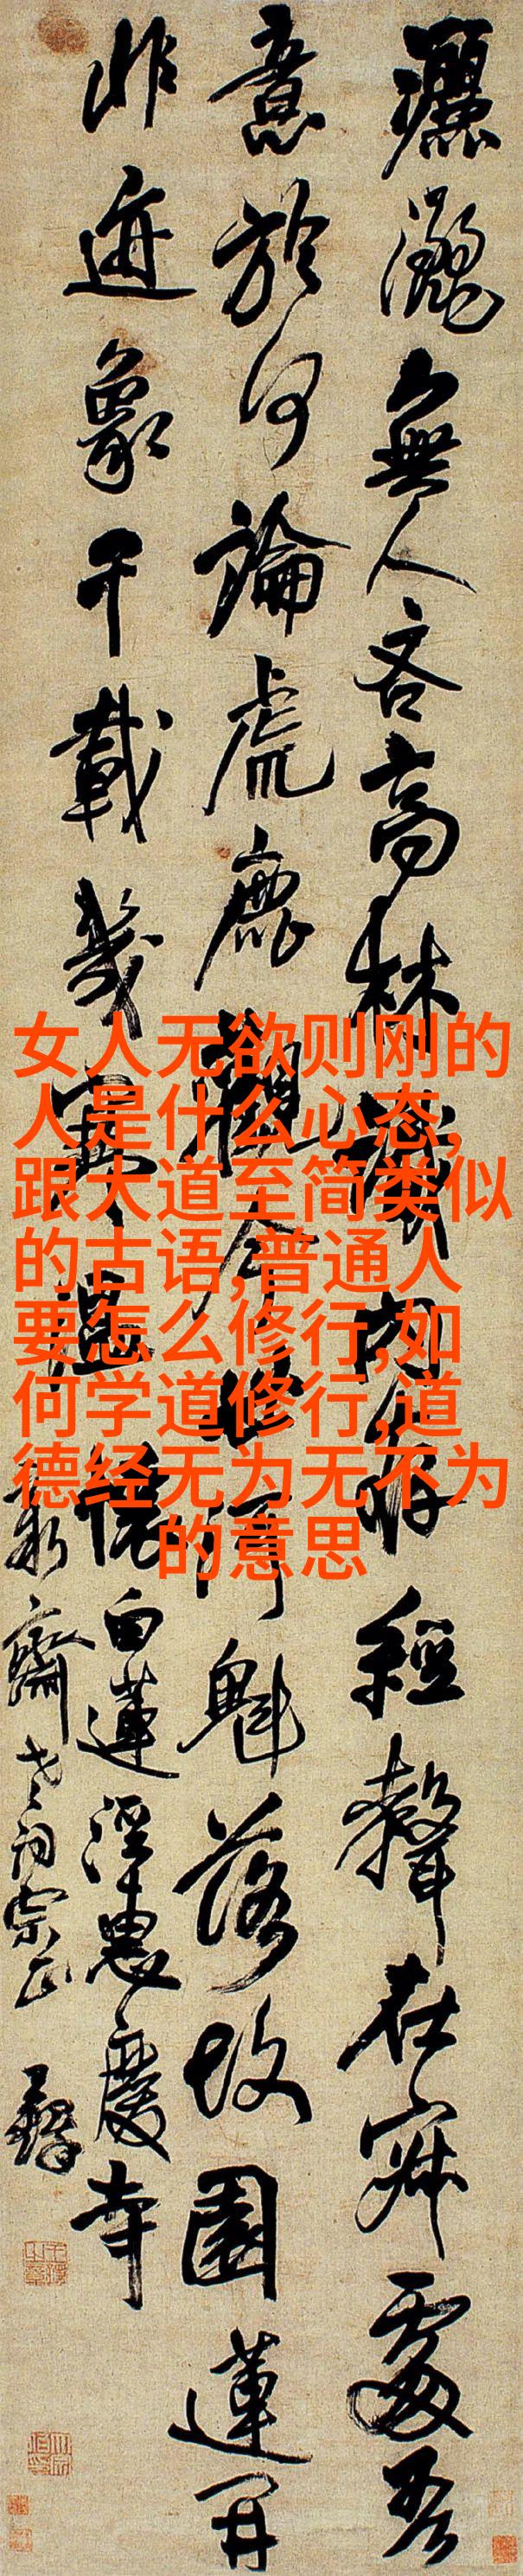 無人吝高林識內經聲在處吾
意於何論虎鹿觀今世河魁落故園蓮開
非迹象千載幾寒溫懷白蓮涇惠慶寺
齋老詞宗正 鐸
女人无欲则刚的
人是什么心态,
跟大道至简类似
的古语,普通人
要怎么修行,如
何学道修行,道
德经无为无不为
的意思